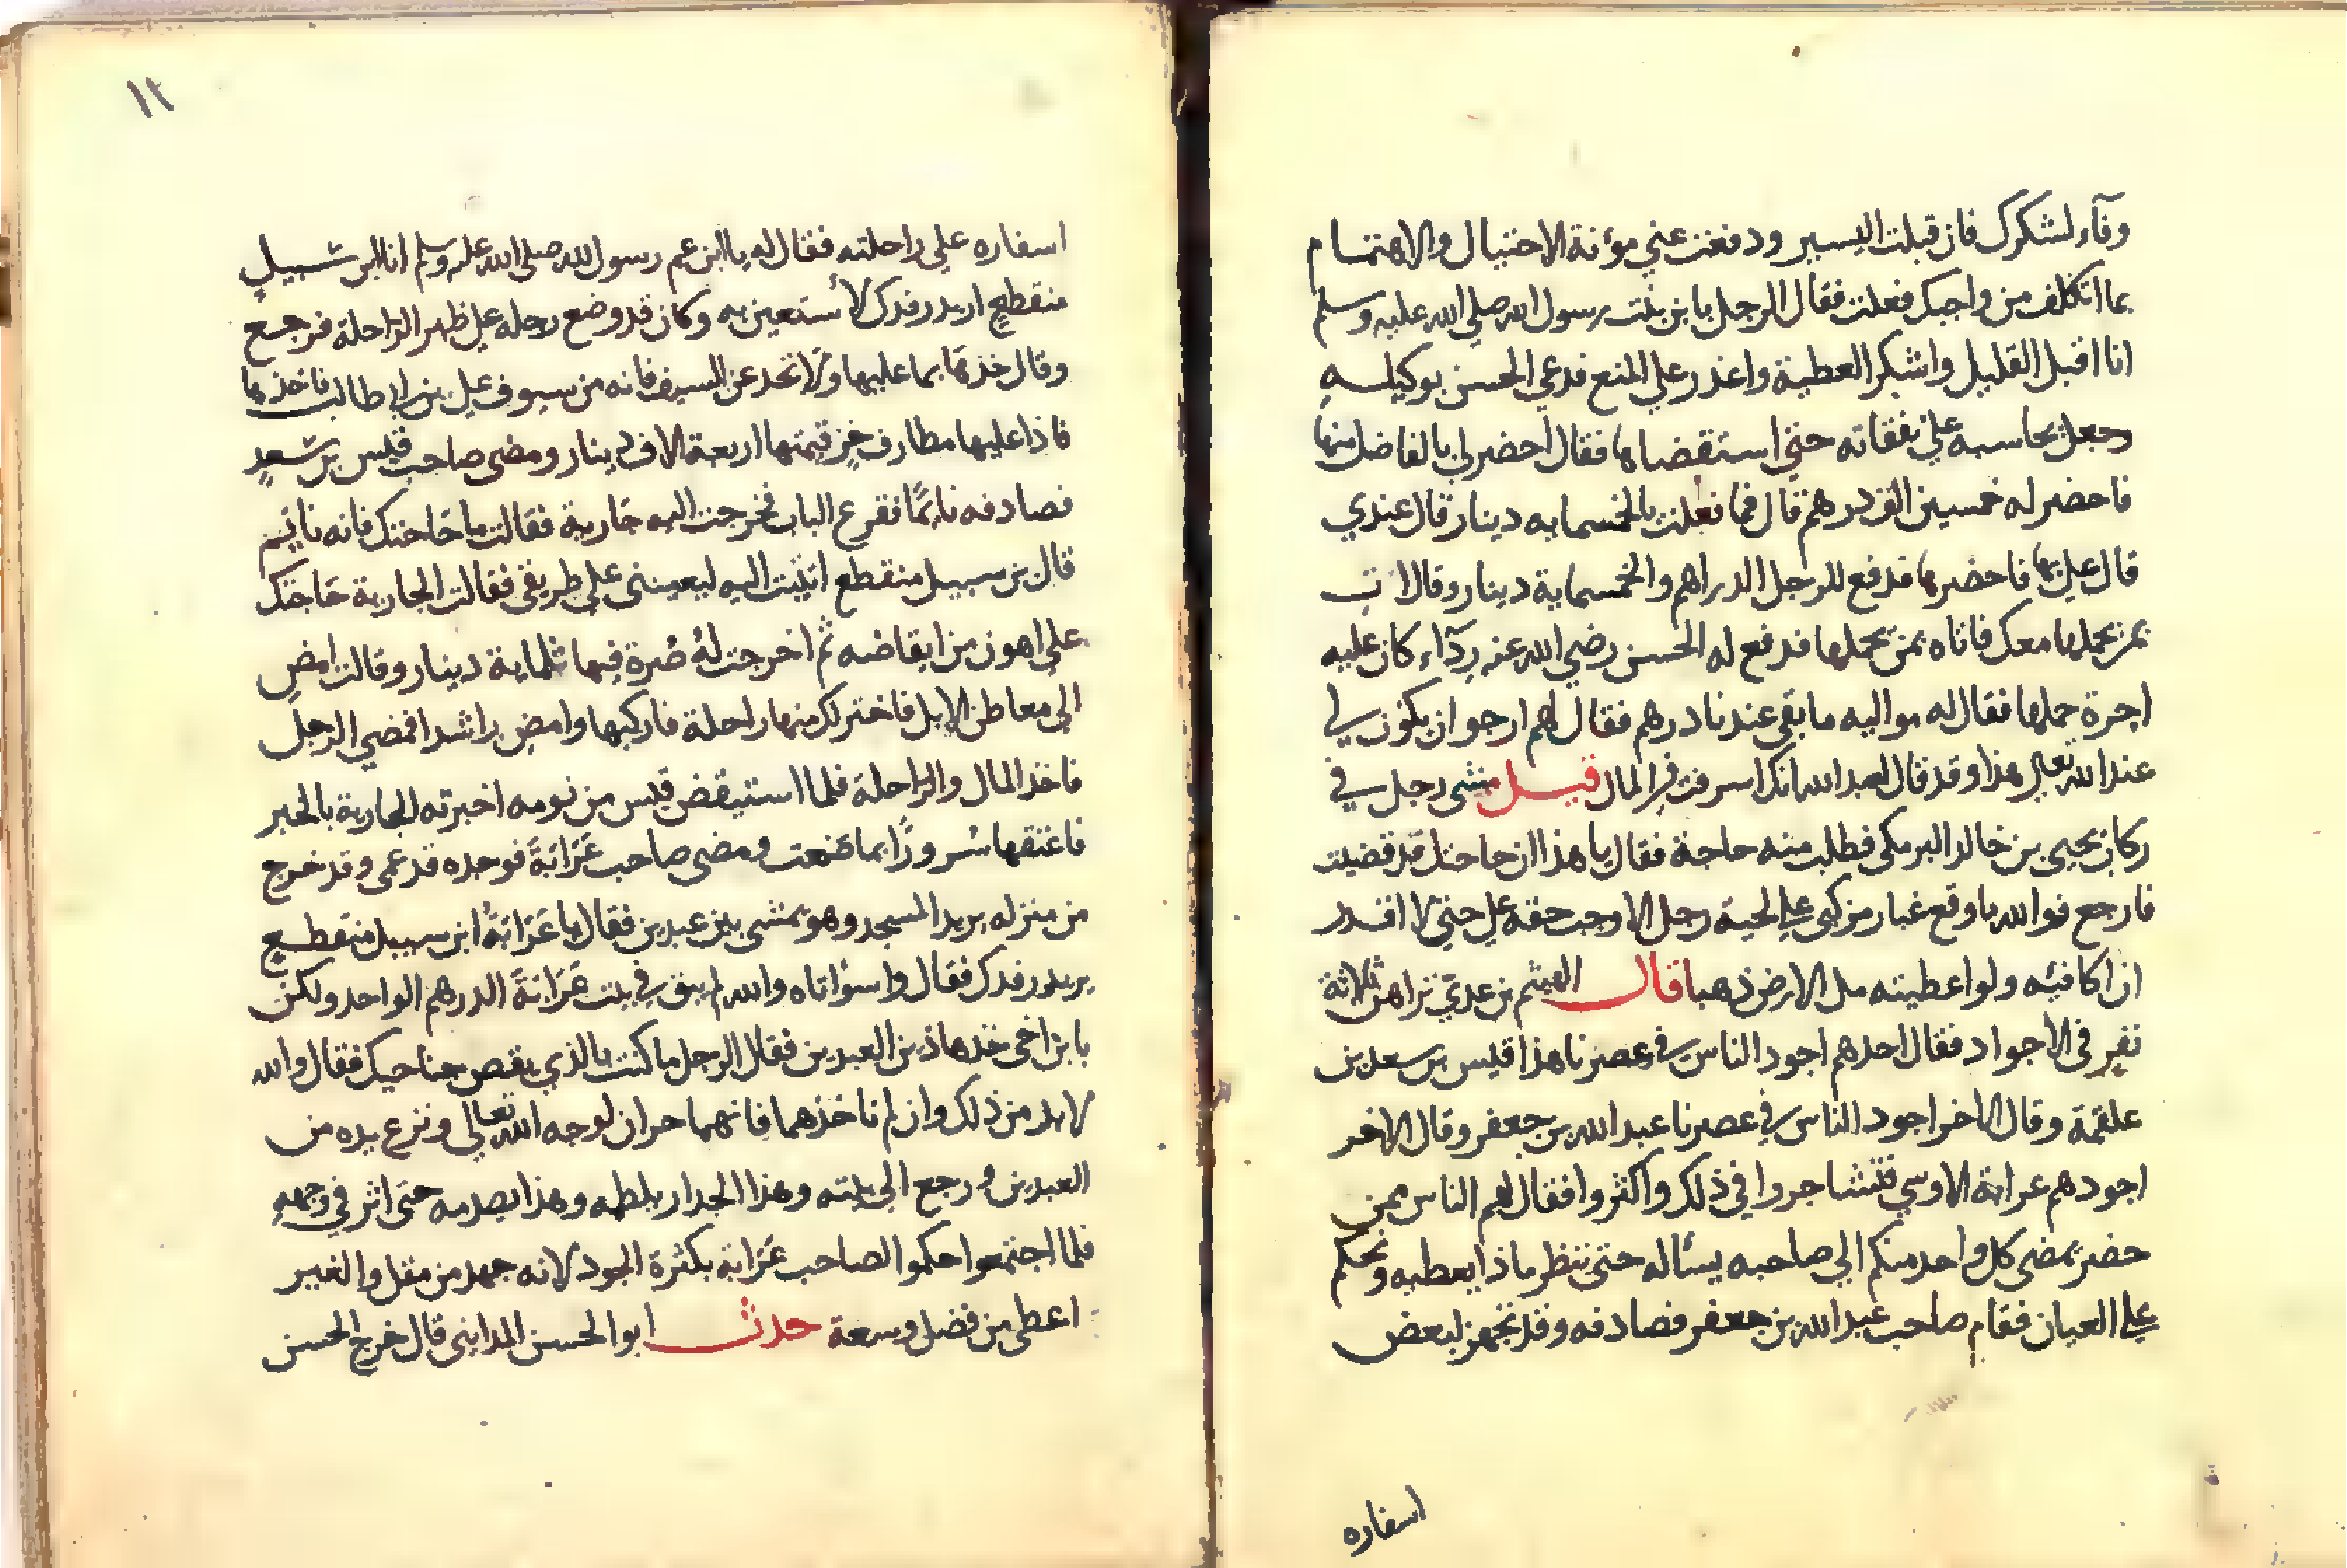 وفآء لشكرك فان قبلت اليسير ودفعت عني مؤنة الاحتيال والاهتمام
بما اتكلف من واجبك فعلت فقال الرجل يا بن بنت رسول الله صلي الله عليه وسلم
انا اقبل القليل واشكر العطية واعذر علي المنع فدعي الحسن بوكيله
وجعل يحاسبه علي نفقاته حتي استقضاها فقال احضر لي بالفاضل منها
فاحضر له خمسين الف درهم قال فما فعلت بالخمسمايه دينار قال عندي
قال علي بها فاحضرها فدفع للرجل الدراهم والخمسماية دينار وقال ات
بمن يحملها معك فاتاه بمن يحملها فدفع له الحسن رضي الله عنه ردآء كان عليه
اجرة حملها فقال له مواليه ما بقي عندنا درهم فقال لهم ارجو ان يكون لي
عند الله تعالي هذا وقد قال لعبد الله انك اسرفت في المال قيل مشى رجل في
ركان يحيى بن خالد البرمكي فطلب منه حاجة فقال يا هذا ان حاجتك قد قضيت
فارجع فوالله ما وقع غبار مركبي علي لحية رجل الا وجب حقه علي حتي لا اقدر
ان اكافئه ولو اعطيته مل الارض ذهبا قال الهيثم بن عدي تراهن ثلاثة
نفر في الاجواد فقال احدهم اجود الناس في عصرنا هذا قيس بن سعد بن
علقمة وقال الاخر اجود الناس في عصرنا عبد الله بن جعفر وقال الاخر
اجودهم عرابة الاوسي فتشاجروا في ذلك واكثروا فقال لهم الناس ممن
حضر يمضى كل واحد منكم الي صاحبه يسأله حتى ننظر ماذا يعطيه ونحكم
علي العيان فقام صاحب عبد الله بن جعفر فصادفه وقد تجهز لبعض
اسفاره
١٢
اسفاره علي راحلته فقال له يا ابن عم رسول الله صلى الله عليه وسلم انا ابن سبيل
منقطع اريد رفدك لأستعين به وكان قد وضع رجله علي ظهر الراحلة فرجع
وقال خذها بما عليها ولا تخدعن السيف فانه من سيوف علي بن ابي طالب فاخذها
فاذا عليها مطارف خز قيمتها اربعة الاف دينار ومضى صاحب قيس بن سعد
فصادفه نايمًا فقرع الباب فخرجت اليه جارية فقالت ما حاجتك فانه نايم
قال بن سبيل منقطع اتيت اليه ليعينني علي طريقي فقالت الجارية حاجتك
علي اهون من ايقاضه ثم اخرجت له صرة فيها ثلماية دينار وقالت امض
الي معاطن الابل فاختر لك منها راحلة فاركبها وامض راشدا فمضي الرجل
فاخذ المال والراحلة فلما استيقض قيس من نومه اخبرته الجارية بالخبر
فاعتقها سرورًا بما صنعت ومضى صاحب عَرَابَةَ فوجده قد عمى وقد خرج
من منزله يريد المسجد وهو يمشى بين عبدين فقال يا عَرَابَةُ ابن سبيل منقطع
يريد رفدك فقال واسوأتاه والله لم يبق في بيت عَرَابَةَ الدرهم الواحد ولكن
يا بن اخي خذ هاذين العبدين فقال الرجل ما كنت بالذي يقص جناحيك فقال والله
لا بد من ذلك وان لم تاخذهما فانهما حران لوجه الله تعالي ونزع يده من
العبدين ورجع الي بيته وهذا الجدار يلطمه وهذا يصدمه حتى اثر في وجهه
فلما اجتمعوا حكموا لصاحب عَرَابة بكثرة الجود لانه جهد من مقل والغير
اعطى من فضل وسعة حدث ابو الحسن المداينى قال خرج الحسن